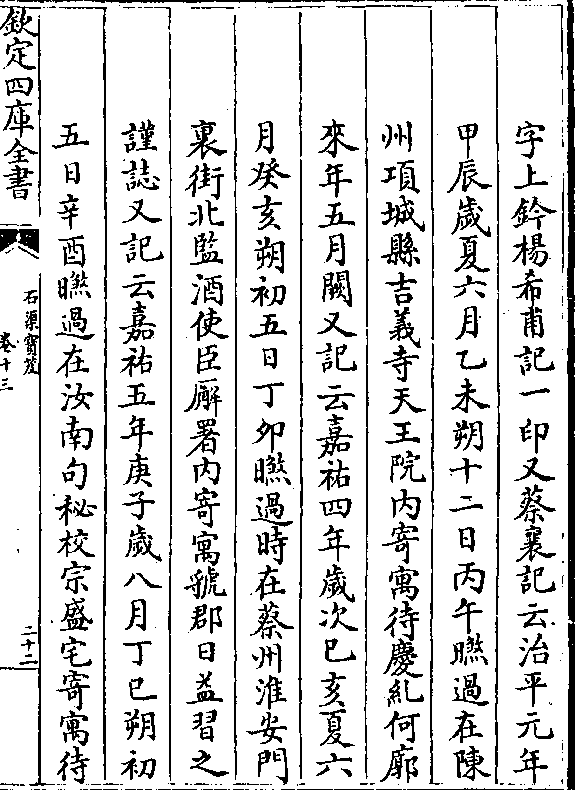 字上鈐楊希甫記一印又蔡襄記云治平元年
甲辰歲夏六月乙未朔十二日丙午㬠過在陳
州項城縣吉義寺天王院内寄寓待慶糺何廓
來年五月闕又記云嘉祐四年歲次已亥夏六
月癸亥朔初五日丁夘㬠過時在蔡州淮安門
裏街北監酒使臣廨署内寄寓虢郡日益習之
謹誌又記云嘉祐五年庚子歲八月丁巳朔初
五日辛酉㬠過在汝南句秘校宗盛宅寄寓待
欽定四庫全書
石渠寳笈
卷十三
二十二